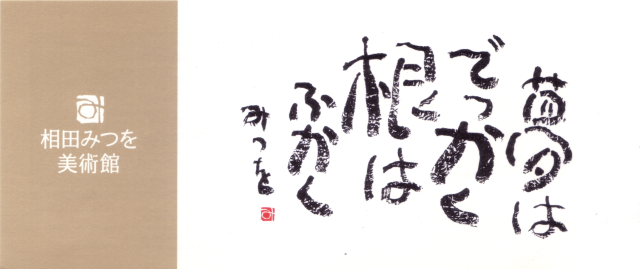 相田みつを
美術館
夢は
でっかく
根は
ふかく
みつを
み